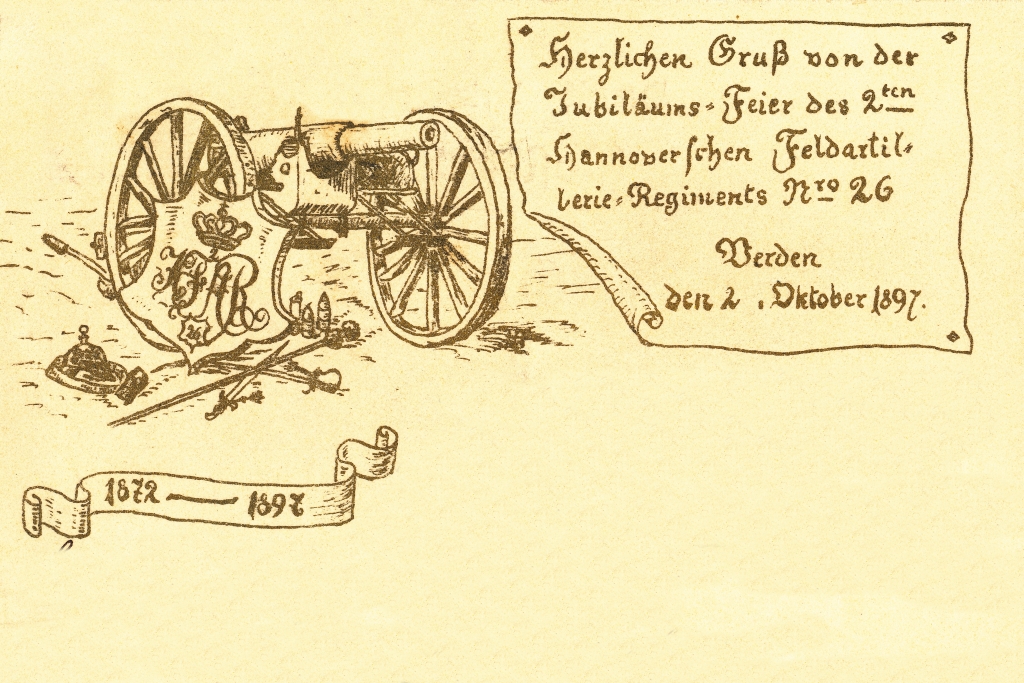 Herzlichen Gruß von der
Jubiläums-Feier des 2ten
Hannoverschen Feldartil-
lerie-Regiments Nro 26
Verden
den 2. Oktober 1897.
26
1872 — 1897